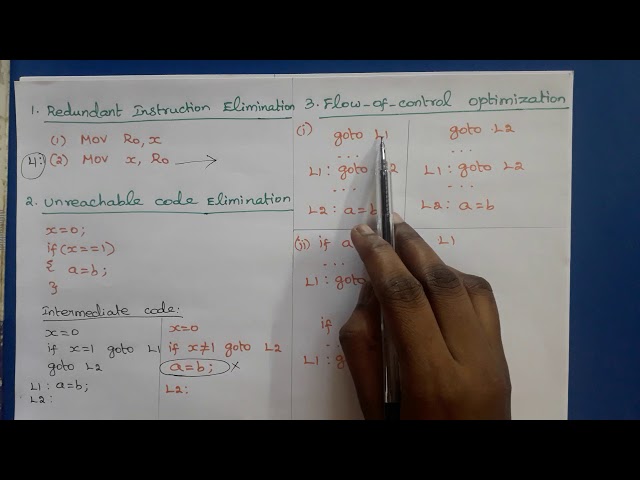 1. Redundant Instruction Elimination
(1) Mov Ro, x
L1: (2) Mov x, Ro
2. Unreachable code Elimination
x=0;
if(x==1)
{ a=b;
}
Intermediate code:
x=0
if x=1 goto L1
goto L2
L1: a=b;
L2:
x=0
if x≠1 goto L2
a=b; x
L2:
3. Flow-of-control optimization
(i)
goto L1
...
L1: goto L2
...
L2: a=b
goto L2
...
L1: goto L2
...
L2: a=b
(ii) if a
L1
...
L1: goto
if
...
L1: go